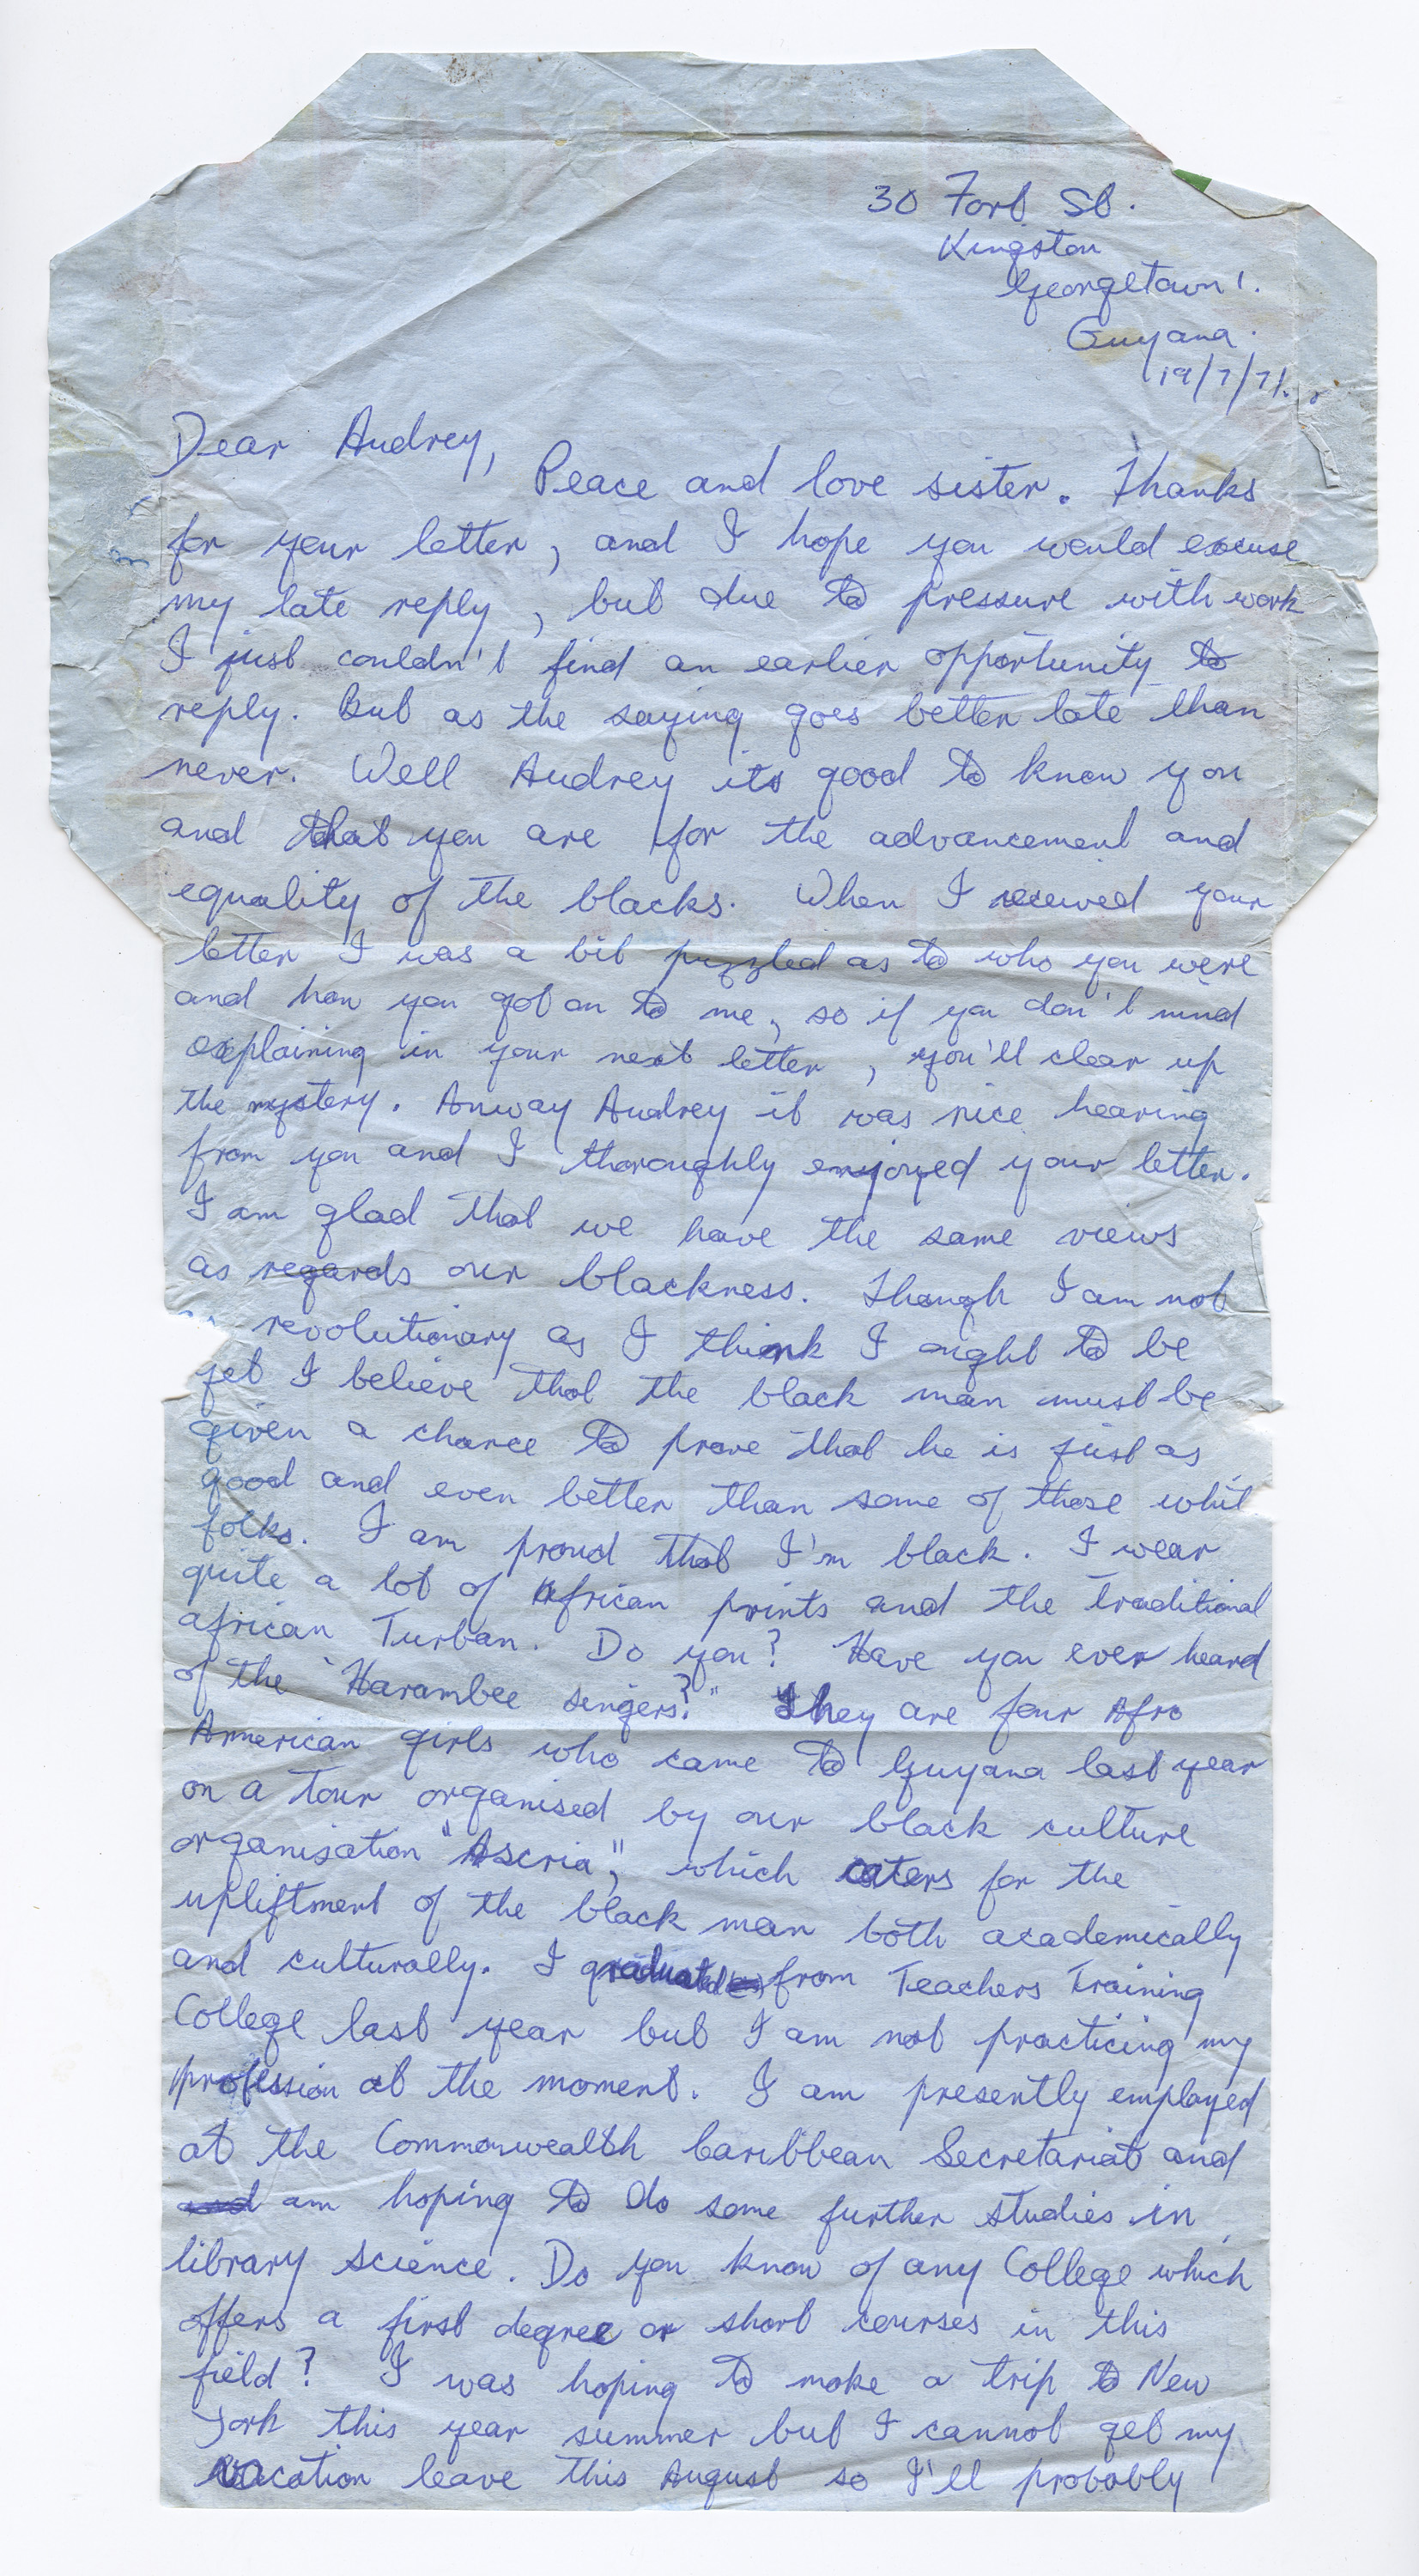 30 Fort St.
Kingston
Georgetown 1.
Guyana.
19/7/71.
Dear Audrey,
Peace and love sister. Thanks
for your letter, and I hope you would excuse
my late reply, but due to pressure with work
I just couldn't find an earlier opportunity to
reply. But as the saying goes better late than
never. Well Audrey its good to know you
and that you are for the advancement and
equality of the blacks. When I received your
letter I was a bit puzzled as to who you were
and how you got on to me, so if you don't mind
explaining in your next letter, you'll clear up
the mystery. Anway Audrey it was nice hearing
from you and I thoroughly enjoyed your letter.
I am glad that we have the same views
as regards our blackness. Though I am not
revolutionary as I think I ought to be
yet I believe that the black man must be
given a chance to prove that he is just as
good and even better than some of those whit
folks. I am proud that I'm black. I wear
quite a lot of African prints and the traditional
african Turban. Do you? Have you ever heard
of the "Harambee singers?" They are four Afro
American girls who came to Guyana last year
on a Tour organised by our black culture
organisation "Ascria", which caters for the
upliftment of the black man both academically
and culturally. I graduated from Teachers Training
College last year but I am not practicing my
profession at the moment. I am presently employed
at the Commonwealth Caribbean Secretariat and
and am hoping to do some further studies in
library science. Do you know of any College which
offers a first degree or short courses in this
field? I was hoping to make a trip to New
York this year summer but I cannot get my
vacation leave this August so I'll probably